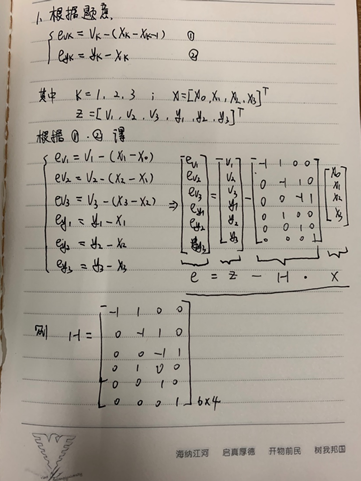 1. 根据题意.
{ e_{vk} = V_k - (x_k - x_{k-1}) ①
e_{yk} = y_k - x_k ②
其中 K = 1, 2, 3 ; X = [x_0, x_1, x_2, x_3]^T
Z = [v_1, v_2, v_3, y_1, y_2, y_3]^T
根据①.②得
e_{v1} = V_1 - (x_1 - x_0)
e_{v2} = V_2 - (x_2 - x_1)
e_{v3} = V_3 - (x_3 - x_2)
e_{y1} = y_1 - x_1
e_{y2} = y_2 - x_2
e_{y3} = y_3 - x_3
⇒ [e_{v1} e_{v2} e_{v3} e_{y1} e_{y2} e_{y3}] = [v_1 v_2 v_3 y_1 y_2 y_3] - [-1 1 0 0
0 -1 1 0
0 0 -1 1
0 1 0 0
0 0 1 0
0 0 0 1] [x_0 x_1 x_2 x_3]
e = z - H · x
则 H = [-1 1 0 0
0 -1 1 0
0 0 -1 1
0 1 0 0
0 0 1 0
0 0 0 1] 6×4
海纳江河 启真厚德 开物前民 树我邦国